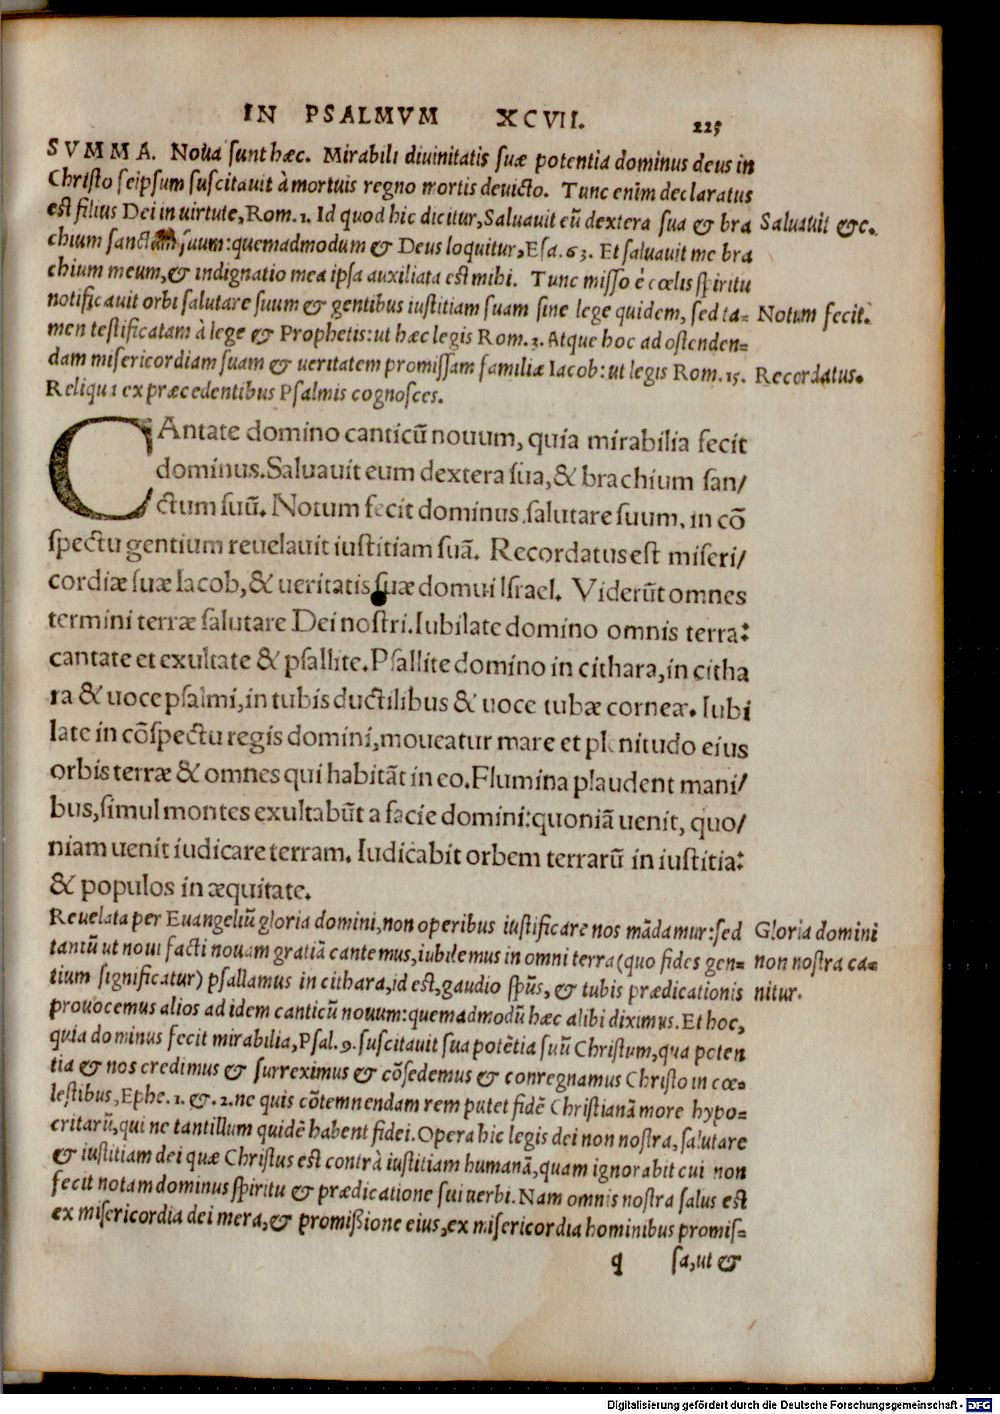 IN PSALMVM XCVII. 225
SVMMA. Noua sunt hæc. Mirabili diuinitatis suæ potentia dominus deus in
Christo seipsum suscitauit à mortuis regno mortis deuicto. Tunc enim declaratus
est filius Dei in uirtute, Rom. 1. Id quod hic dicitur, Saluauit eũ dextera sua & bra
Saluauit &c.
chium sanctum suum: quemadmodum & Deus loquitur, Esa. 63. Et saluauit me bra
chium meum, & indignatio mea ipsa auxiliata est mihi. Tunc misso è cœlis spiritu
notificauit orbi salutare suum & gentibus iustitiam suam sine lege quidem, sed ta=
Notum fecit.
men testificatam à lege & Prophetis: ut hæc legis Rom. 3. Atque hoc ad ostenden=
dam misericordiam suam & ueritatem promissam familiæ Iacob: ut legis Rom. 15.
Recordatus.
Reliqua ex præcedentibus Psalmis cognosces.
CAntate domino canticũ nouum, quia mirabilia fecit
dominus. Saluauit eum dextera sua, & brachium san/
ctum suũ. Notum fecit dominus salutare suum, in cõ
spectu gentium reuelauit iustitiam suã. Recordatus est miseri/
cordiæ suæ Iacob, & ueritatis suæ domui Israel. Viderũt omnes
termini terræ salutare Dei nostri. Iubilate domino omnis terra:
cantate et exultate & psallite. Psallite domino in cithara, in citha
ra & uoce psalmi, in tubis ductilibus & uoce tubæ corneæ. Iubi
late in cõspectu regis domini, moueatur mare et plenitudo eius
orbis terræ & omnes qui habitãt in eo. Flumina plaudent mani/
bus, simul montes exultabũt a facie domini: quoniã uenit, quo/
niam uenit iudicare terram. Iudicabit orbem terrarũ in iustitia:
& populos in æquitate.
Reuelata per Euangeliũ gloria domini, non operibus iustificare nos mãdamur: sed
Gloria domini
tantũ ut noui facti nouam gratiã cantemus, iubilemus in omni terra (quo fides gen=
non nostra ca=
tium significatur) psallamus in cithara, id est, gaudio spũs, & tubis prædicationis
nitur.
prouocemus alios ad idem canticũ nouum: quemadmodũ hæc alibi diximus. Et hoc,
quia dominus fecit mirabilia, Psal. 9. suscitauit sua potẽtia suũ Christum, qua poten
tia & nos credimus & surreximus & cõsedemus & conregnamus Christo in cœ=
lestibus, Ephe. 1. &. 2. ne quis cõtemnendam rem putet fidẽ Christianã more hypo=
critarũ, qui ne tantillum quidẽ habent fidei. Opera hic legis dei non nostra, salutare
& iustitiam dei quæ Christus est contrà iustitiam humanã, quam ignorabit cui non
fecit notam dominus spiritu & prædicatione sui uerbi. Nam omnis nostra salus est
ex misericordia dei mera, & promißione eius, ex misericordia hominibus promis=
q sa, ut &
Digitalisierung gefördert durch die Deutsche Forschungsgemeinschaft - DFG